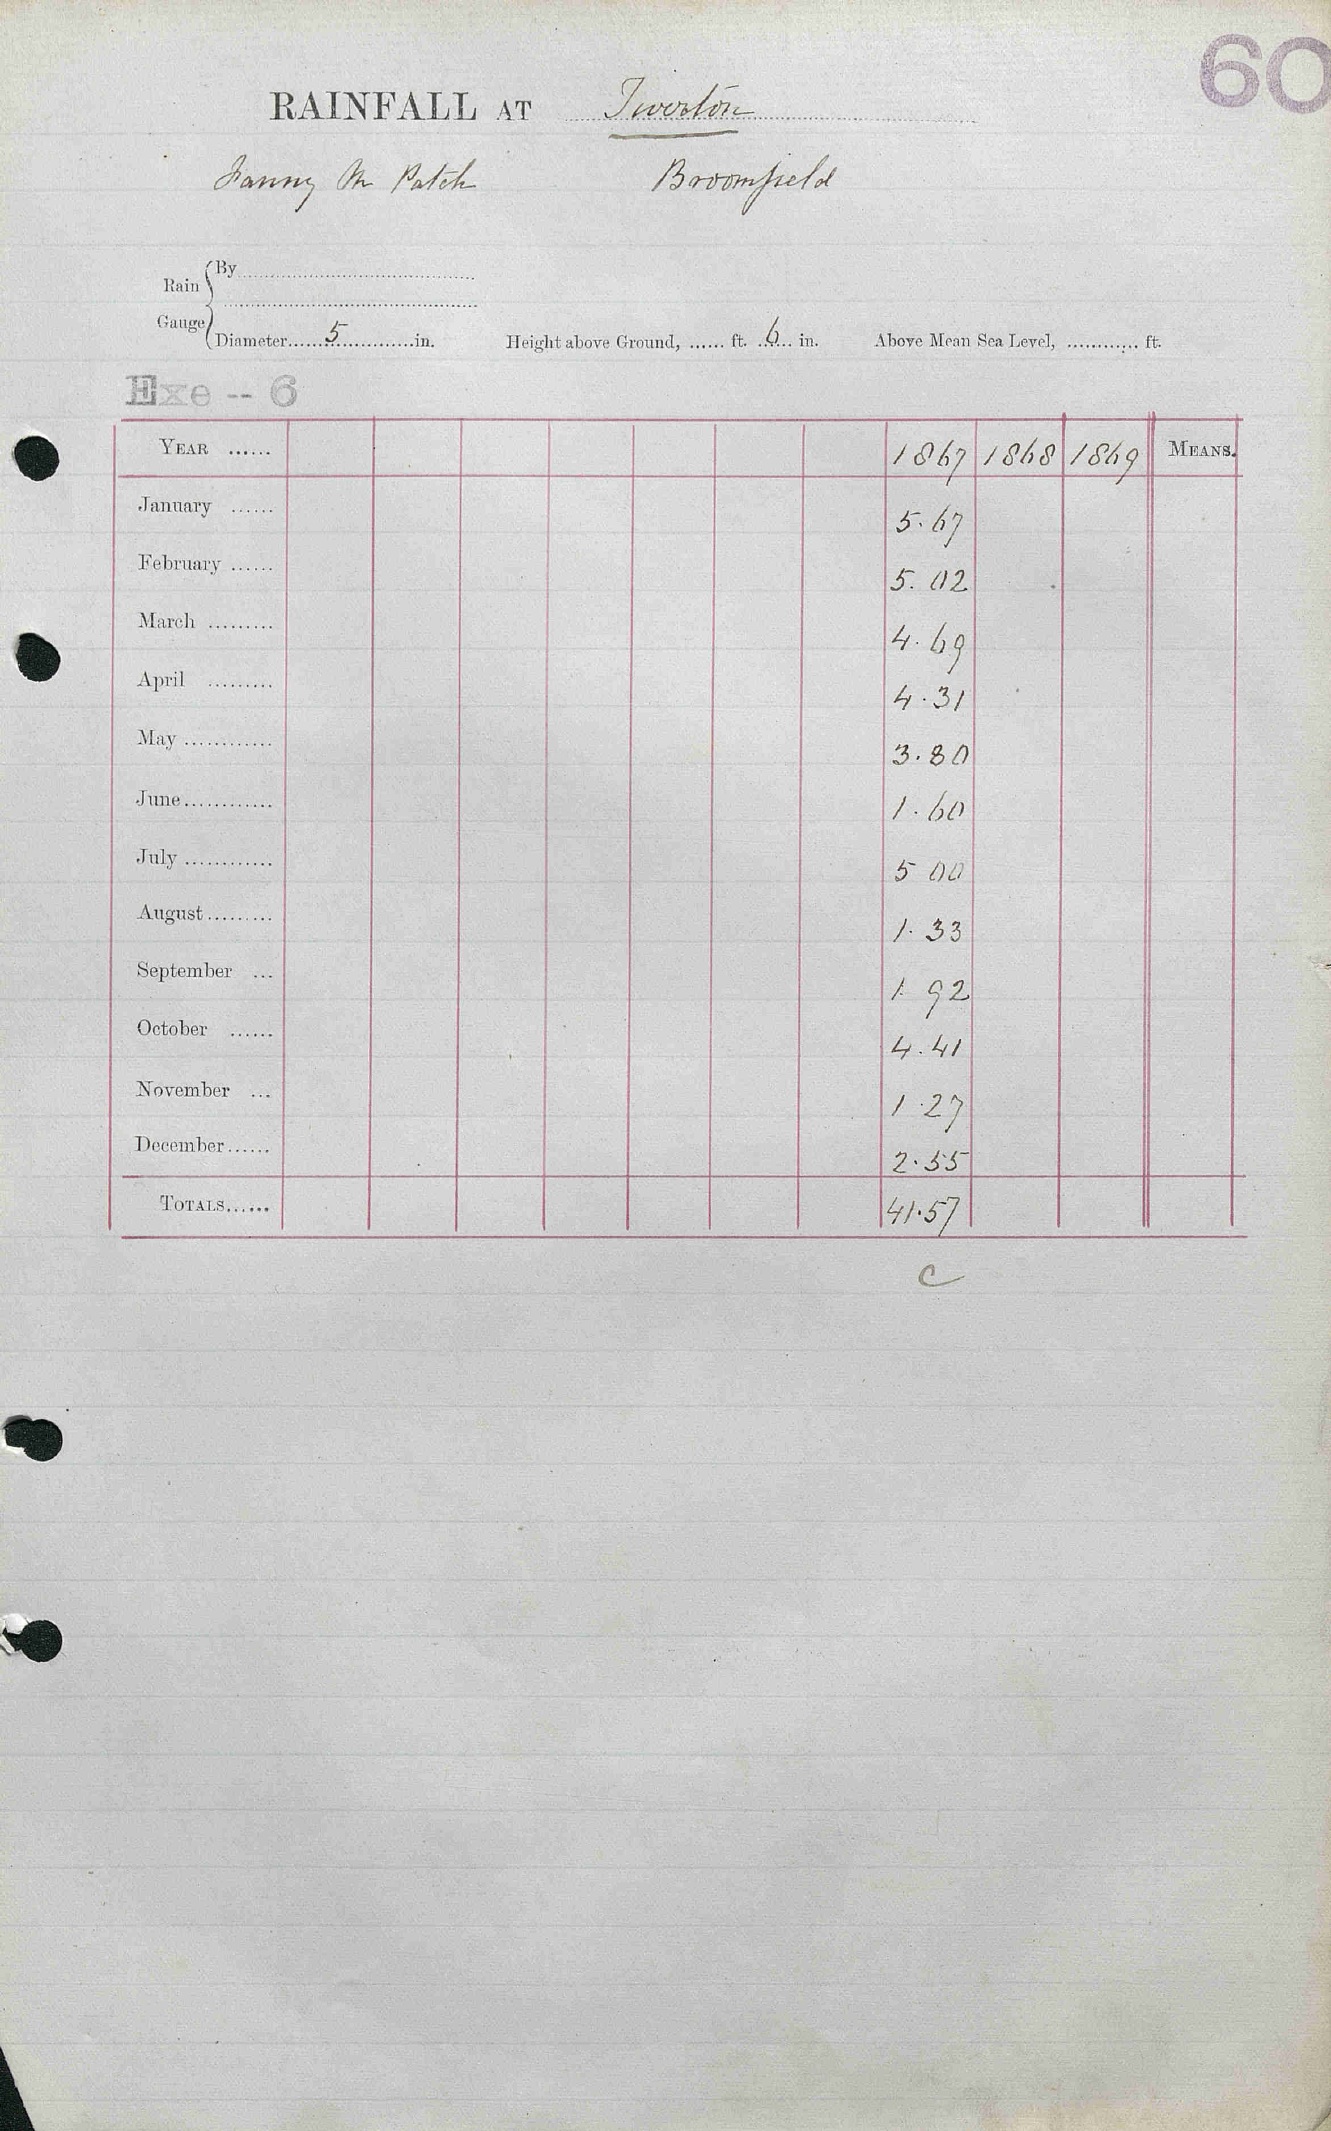 60
RAINFALL AT Tiverton
Fanny M Patch Broomfield
Rain Gauge { By
Diameter 5 in. Height above Ground, ...... ft. 6 in. Above Mean Sea Level, ............ ft.
Exe -- 6
YEAR ...... 1867 1868 1869 MEANS.
January ...... 5.67
February ...... 5.02
March ......... 4.69
April ......... 4.31
May ............ 3.80
June ............ 1.60
July ............ 5 00
August ......... 1.33
September ... 1.92
October ...... 4.41
November ... 1.27
December ...... 2.55
TOTALS ...... 41.57
C